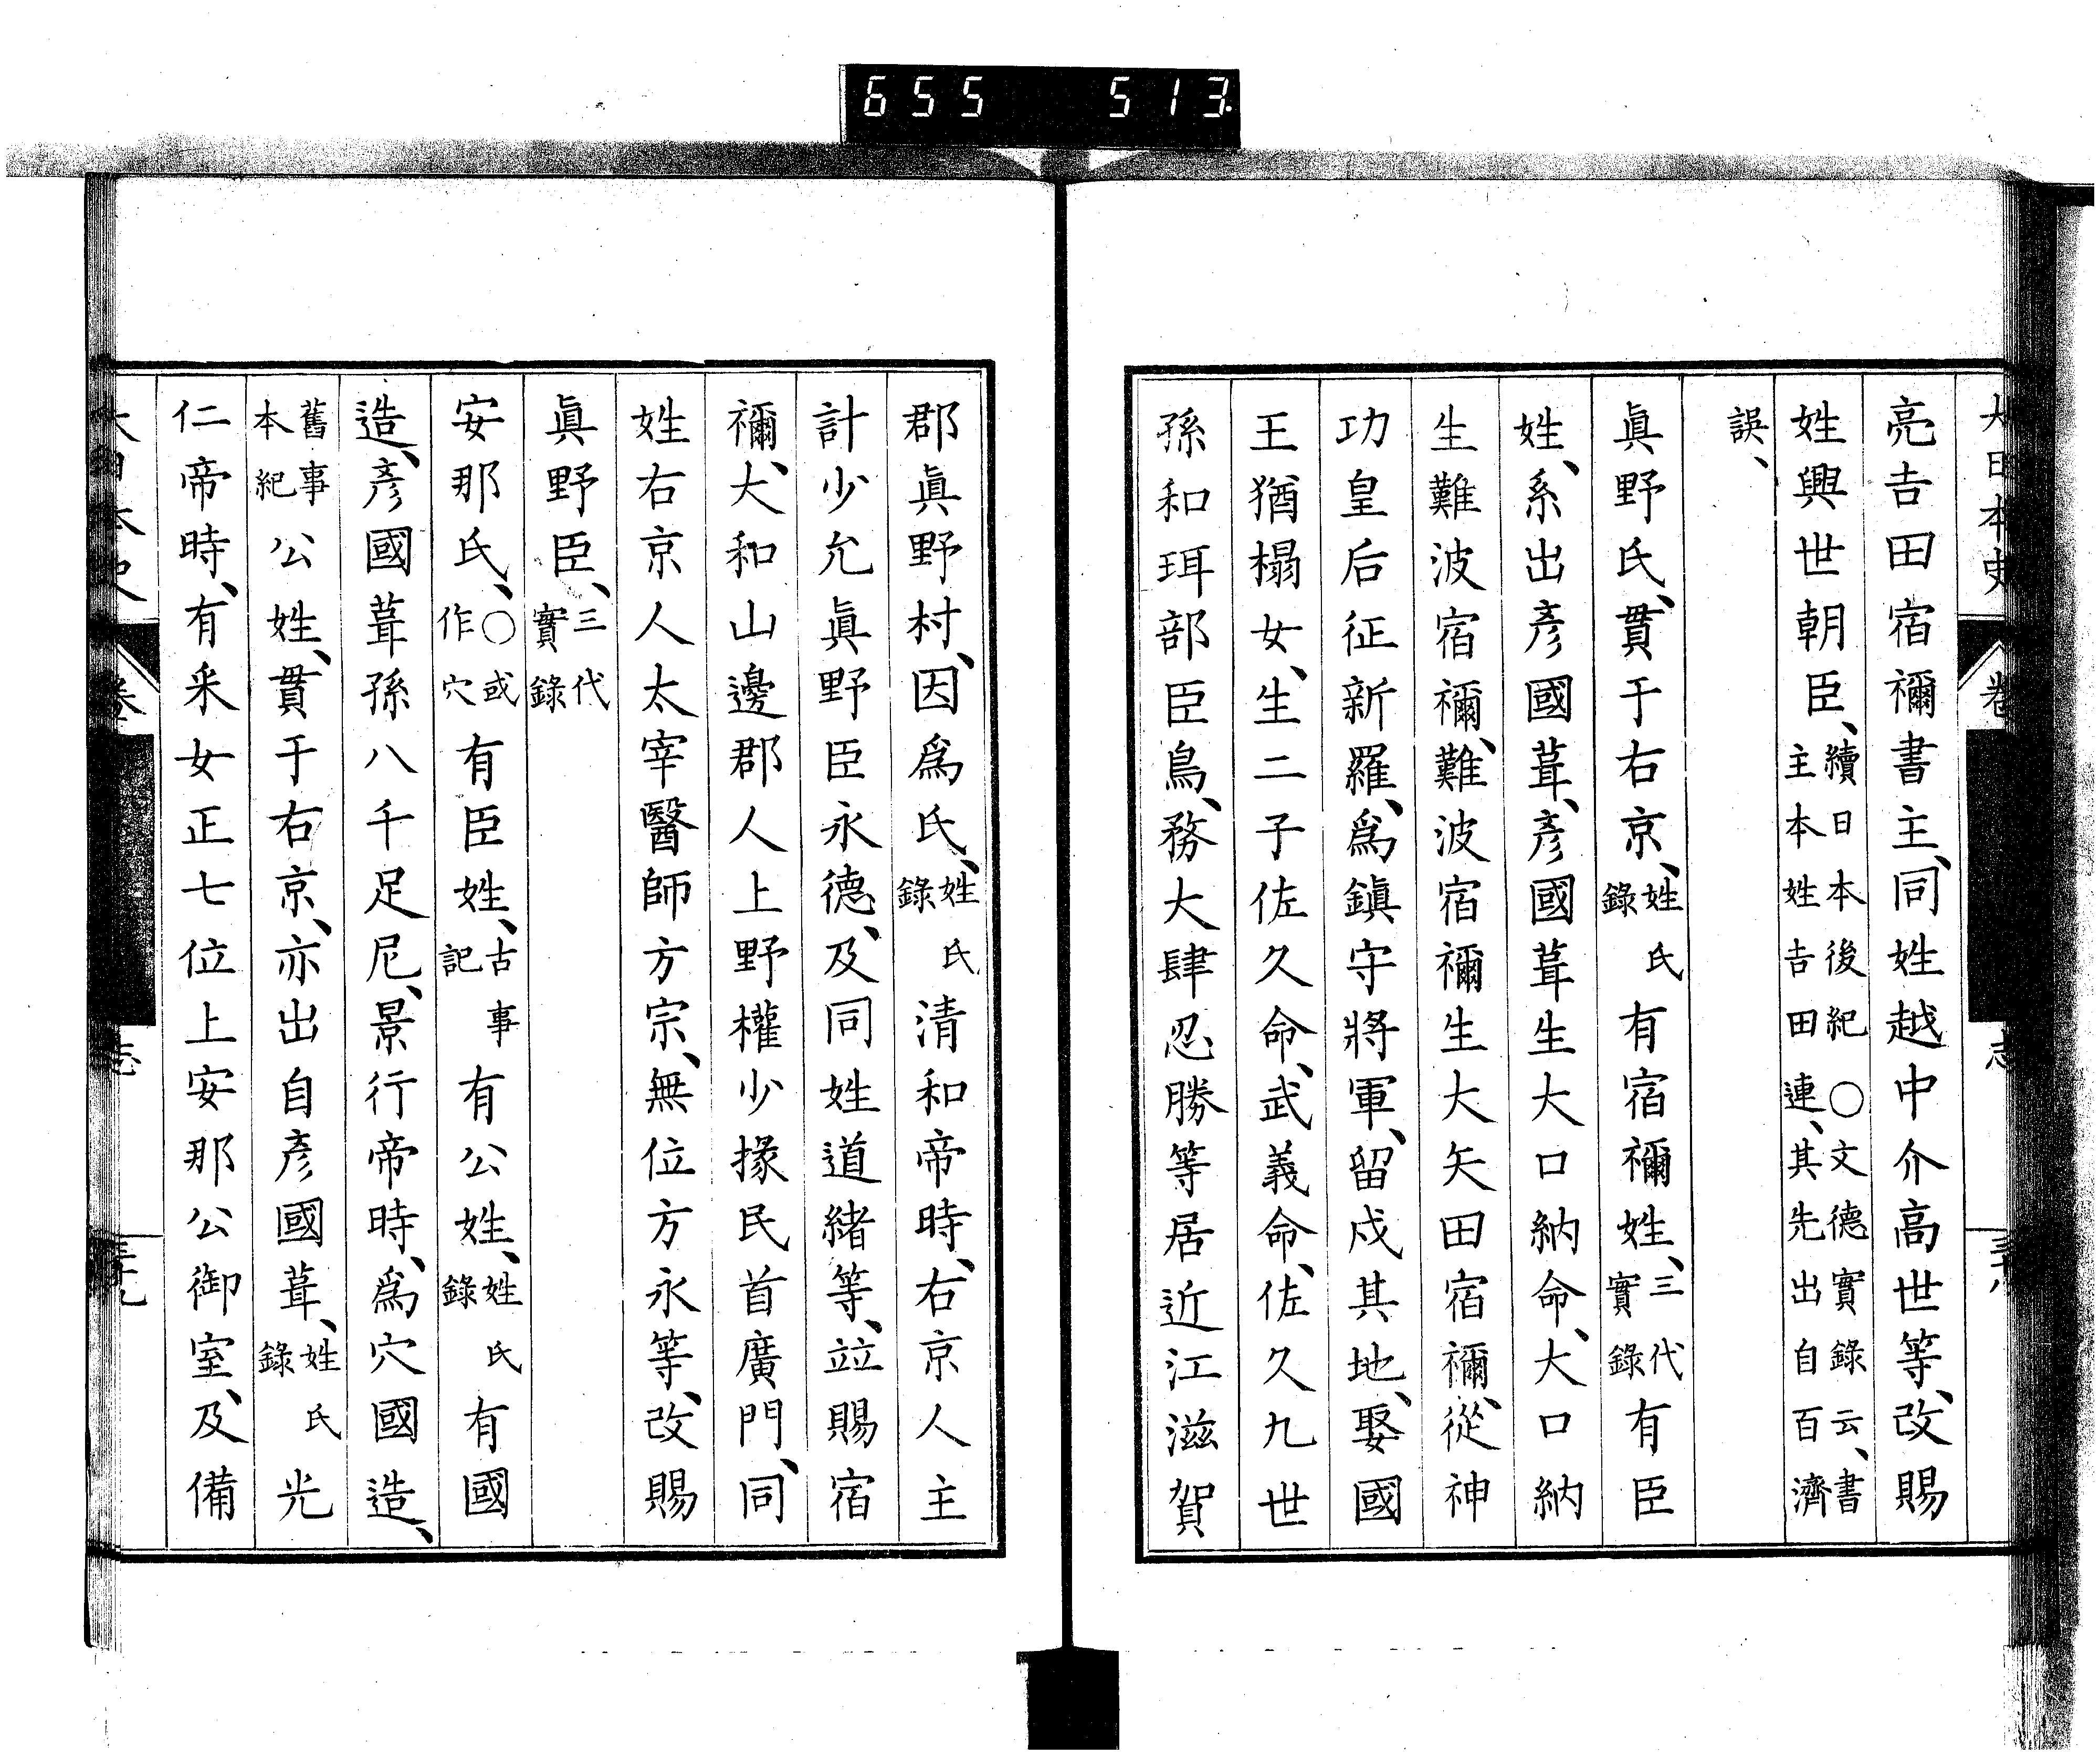 655 513
大日本史 卷 志 三十八
亮吉田宿禰書主、同姓越中介高世等、改賜
姓興世朝臣、續日本後紀○文德實錄云、書主本姓吉田連、其先出自百濟
誤、
眞野氏、貫于右京、姓氏錄有宿禰姓、三代實錄有臣
姓、系出彥國葺、彥國葺生大口納命、大口納
生難波宿禰、難波宿禰生大矢田宿禰、從神
功皇后征新羅、爲鎭守將軍、留戍其地、娶國
王猶榻女、生二子佐久命、武義命、佐久九世
孫和珥部臣鳥、務大肆忍勝等居近江滋賀
郡眞野村、因爲氏、姓氏錄清和帝時、右京人主
計少允眞野臣永德、及同姓道緒等、竝賜宿
禰、大和山邊郡人上野權少掾民首廣門、同
姓右京人太宰醫師方宗、無位方永等、改賜
眞野臣、三代實錄
安那氏、○或作穴有臣姓、古事記有公姓、姓氏錄有國
造、彥國葺孫八千足尼、景行帝時、爲穴國造、
舊事本紀公姓、貫于右京、亦出自彥國葺、姓氏錄光
仁帝時、有釆女正七位上安那公御室、及備
大日本史 卷 志 三十九